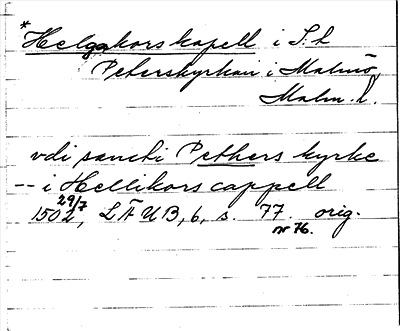 *
Helgakors kapell i S:t
Peterskyrkan i Malmö,
Malm. l.
vdi sancti Pethers kyrke
-- i Hellikors cappell
1502 29/7, LÄUB, 6, s. 77. orig.
nr 76.